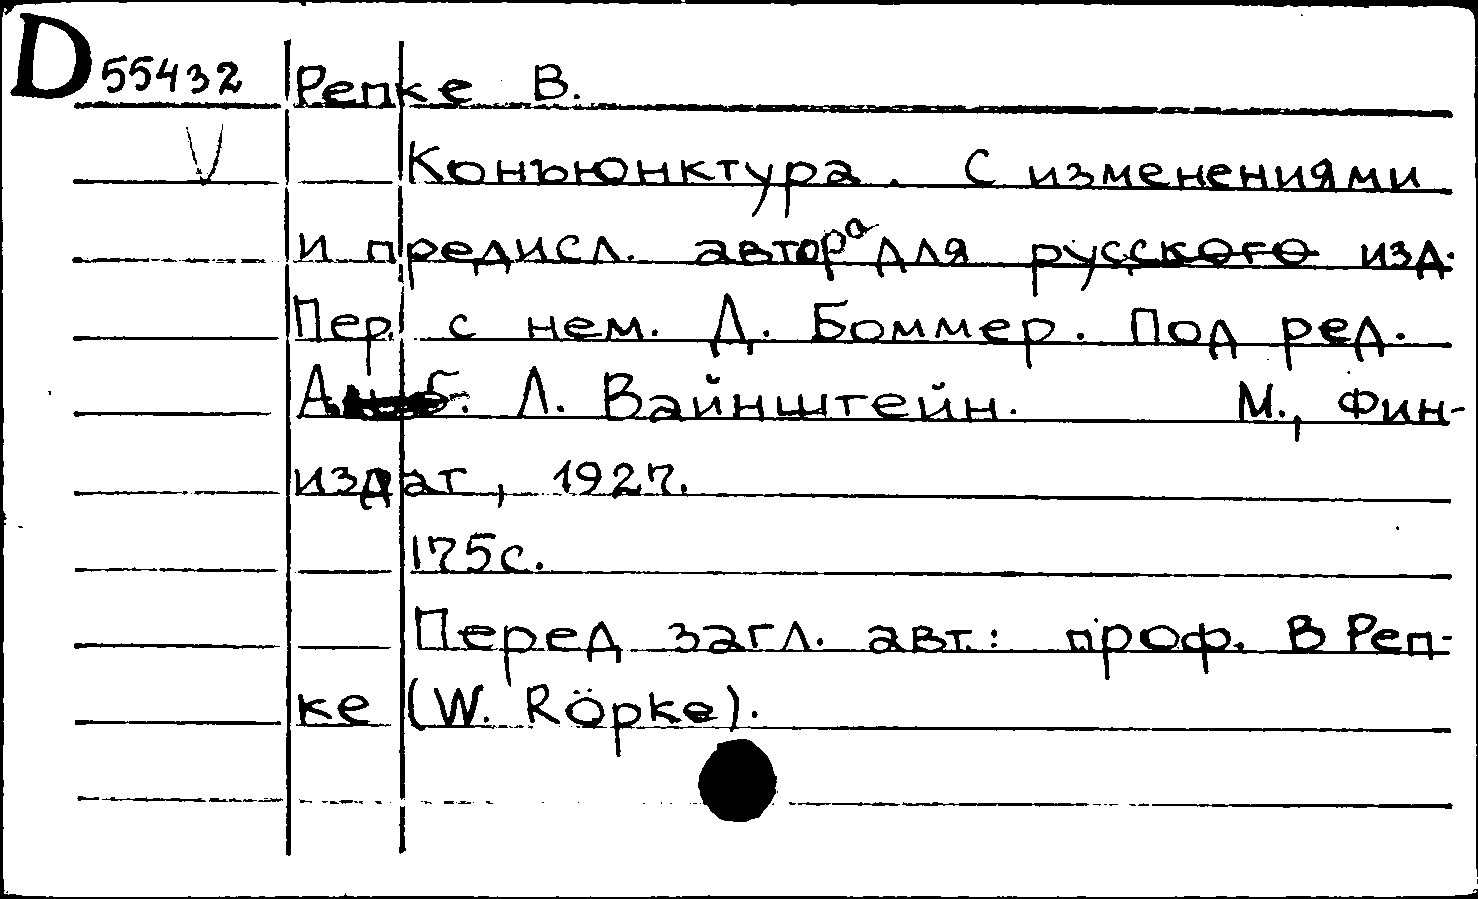 D 55432 Репке В.
V Конъюнктура. С изменениями
и предисл. автора для русского изд.
Пер. с нем. Д. Боммер. Под ред.
Альб. Л. Вайнштейн. М., Фин-
издат, 1927.
175с.
Перед загл. авт.: проф. В Реп-
ке (W. Röpke).